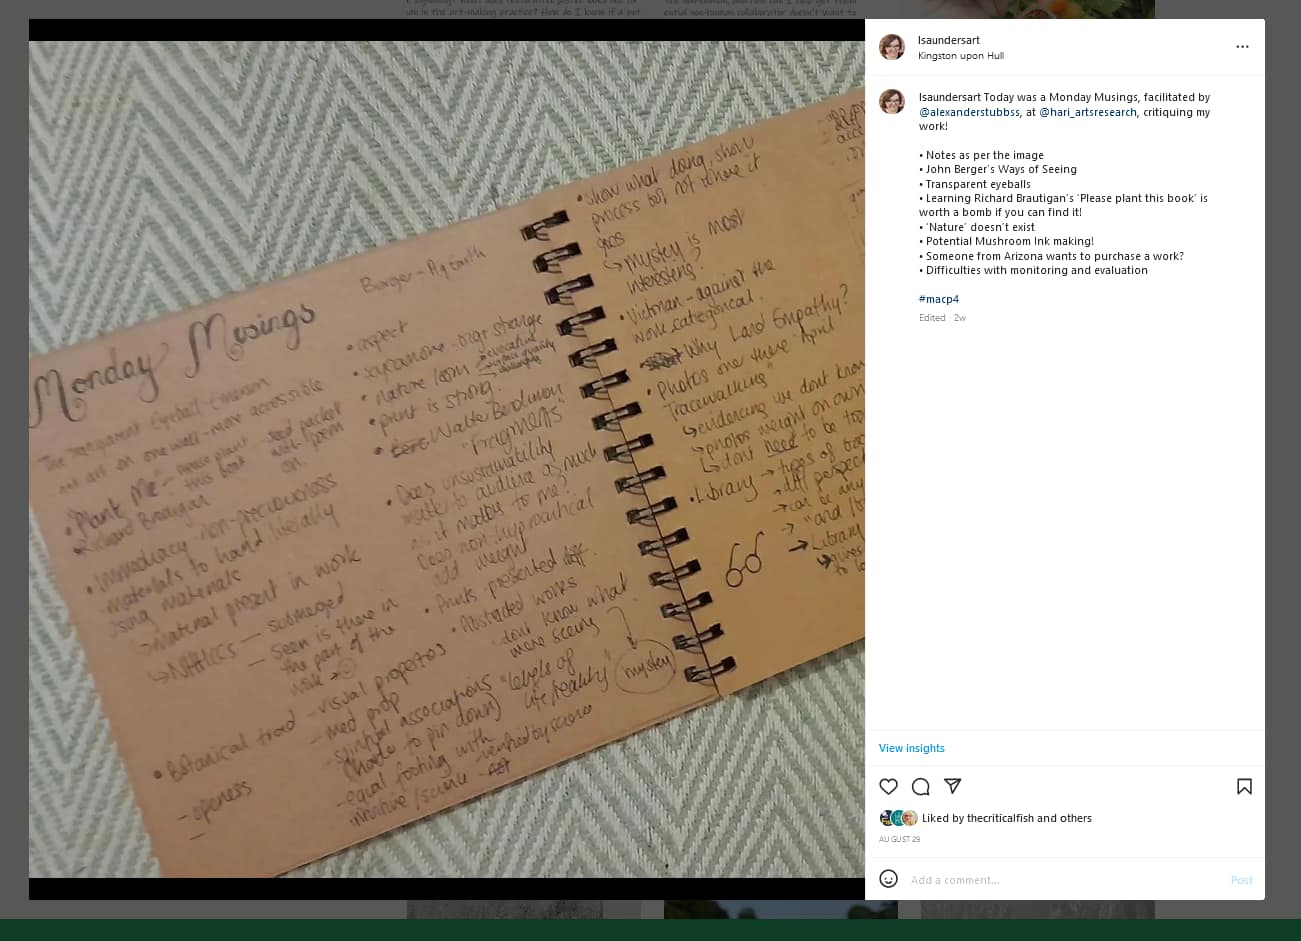 Monday Musings
Berger - Ag
The Transparent Eyeball - Emerson
art on one wall - more accessible
• Plant Me - Please plant this book
seed packet with poem on.
• Richard
• Immediacy, non-preciousness
- materials to hand literally
using materials
↳ material present in work
— submerged
— Seen is there in
the part of the
work →
• Botanical trad — visual properties
— med prop
— spiritual associations
(harder to pin down)
— equal footing with
intuitive / science -
- openness
-
• aspect
• sycamore - bigr strange
• nature loom
• print is strong.
• Walter Benjamin
"Fragments"
• Does unsustainability
matter to audience as much
as it matters to me?
Does non-hypocritical
add weight
• Prints - presented diff.
• Abstracted works
- dont know what
were seeing
"levels of
life/reality"
mystery
verified by science
• Show what doing, show
process but not where it
goes
↳ mystery is most
interesting?
• Victorian - against the
work, categorical.
• Why Land Empathy?
• Photos one there April
Tracewalking"
↳ evidencing we dont know
↳ photos weight on own
↳ dont need to be too
• Library → types of
→ diff perspect
→ can be any
→ "and /
→ Library
lsaundersart
Kingston upon Hull
lsaundersart Today was a Monday Musings, facilitated by
@alexanderstubbss, at @hari_artsresearch, critiquing my
work!
• Notes as per the image
• John Berger's Ways of Seeing
• Transparent eyeballs
• Learning Richard Brautigan's 'Please plant this book' is
worth a bomb if you can find it!
• 'Nature' doesn't exist
• Potential Mushroom Ink making!
• Someone from Arizona wants to purchase a work?
• Difficulties with monitoring and evaluation
#macp4
Edited · 2w
View insights
Liked by thecriticalfish and others
AUGUST 29
Add a comment...
Post